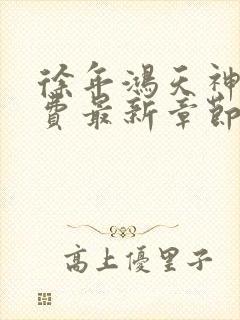 徐年鴻天神
費最新章節
高上優里子